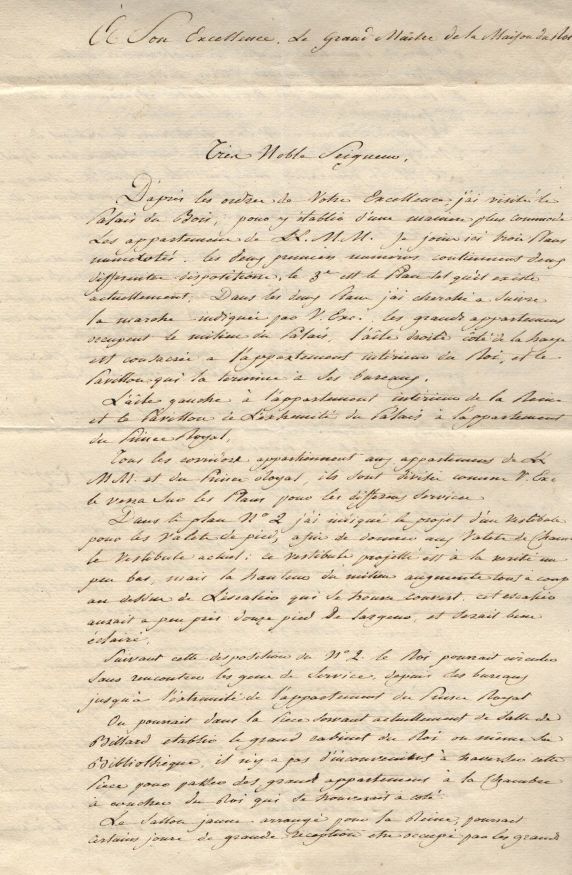 A Son Excellence, Le Grand Maitre de la Maison du Roi
Tres Noble Seigneur,
D'apres les ordres de Votre Excellence, j'ai visité le
Palais du Bois, pour y etablir d'une maniere plus commode
Les appartemens de LL. M.M. Je joins ici trois Plans
numerotés. les deux premiers numeros contiennent deux
differentes dispositions, le 3e est le Plan tel qu'il existe
actuellement, Dans les deux Plans j'ai cherché a suivre
la marche indiquée par V. Exc. les grands appartemens
occupent le milieu du Palais, l'aile droite côté de la haye
est consacrée a l'appartement intérieur du Roi, et le
Pavillon qui la termine à ses bureaux,
L'aile gauche à l'appartement intérieur de la Reine
et le Pavillon de L'extremité du Palais à l'appartement
du Prince Royal,
Tous les corridors appartiennent aux appartemens de LL
M.M. et du Prince Royal, ils sont divisés comme V. Exc
le verra sur les Plans pour les differens services
Dans le plan No 2 j'ai indiqué le projet d'un vestibule
pour les Valets de pied, afin de donner aux Valets de Chamb
le Vestibule actuel: ce vestibule projetté est à la verité un
peu bas, mais la hauteur du milieu augmente tout a coup
au dessus de L'escalier qui se trouve couvert, cet escalier
aurait a peu près douze pied de Largeur, et serait bien
éclairé.
Suivant cette disposition du No 2 le Roi pourrait circuler
sans rencontrer les gens de service, depuis les bureaux
jusqu'a l'extremité de l'appartement du Prince Royal
On pourrait dans la Piece servant actuellement de Salle de
Billard etablir le grand cabinet du Roi ou même sa
Bibliothèque, il n'y a pas d'inconvenient à traverser cette
Piece pour passer des grands appartemens à la Chambre
à coucher du Roi qui se trouverait a coté
Le Sallon jaune arrangé pour la Reine, pourrait
certains jours de grande reception etre occupé par les grands